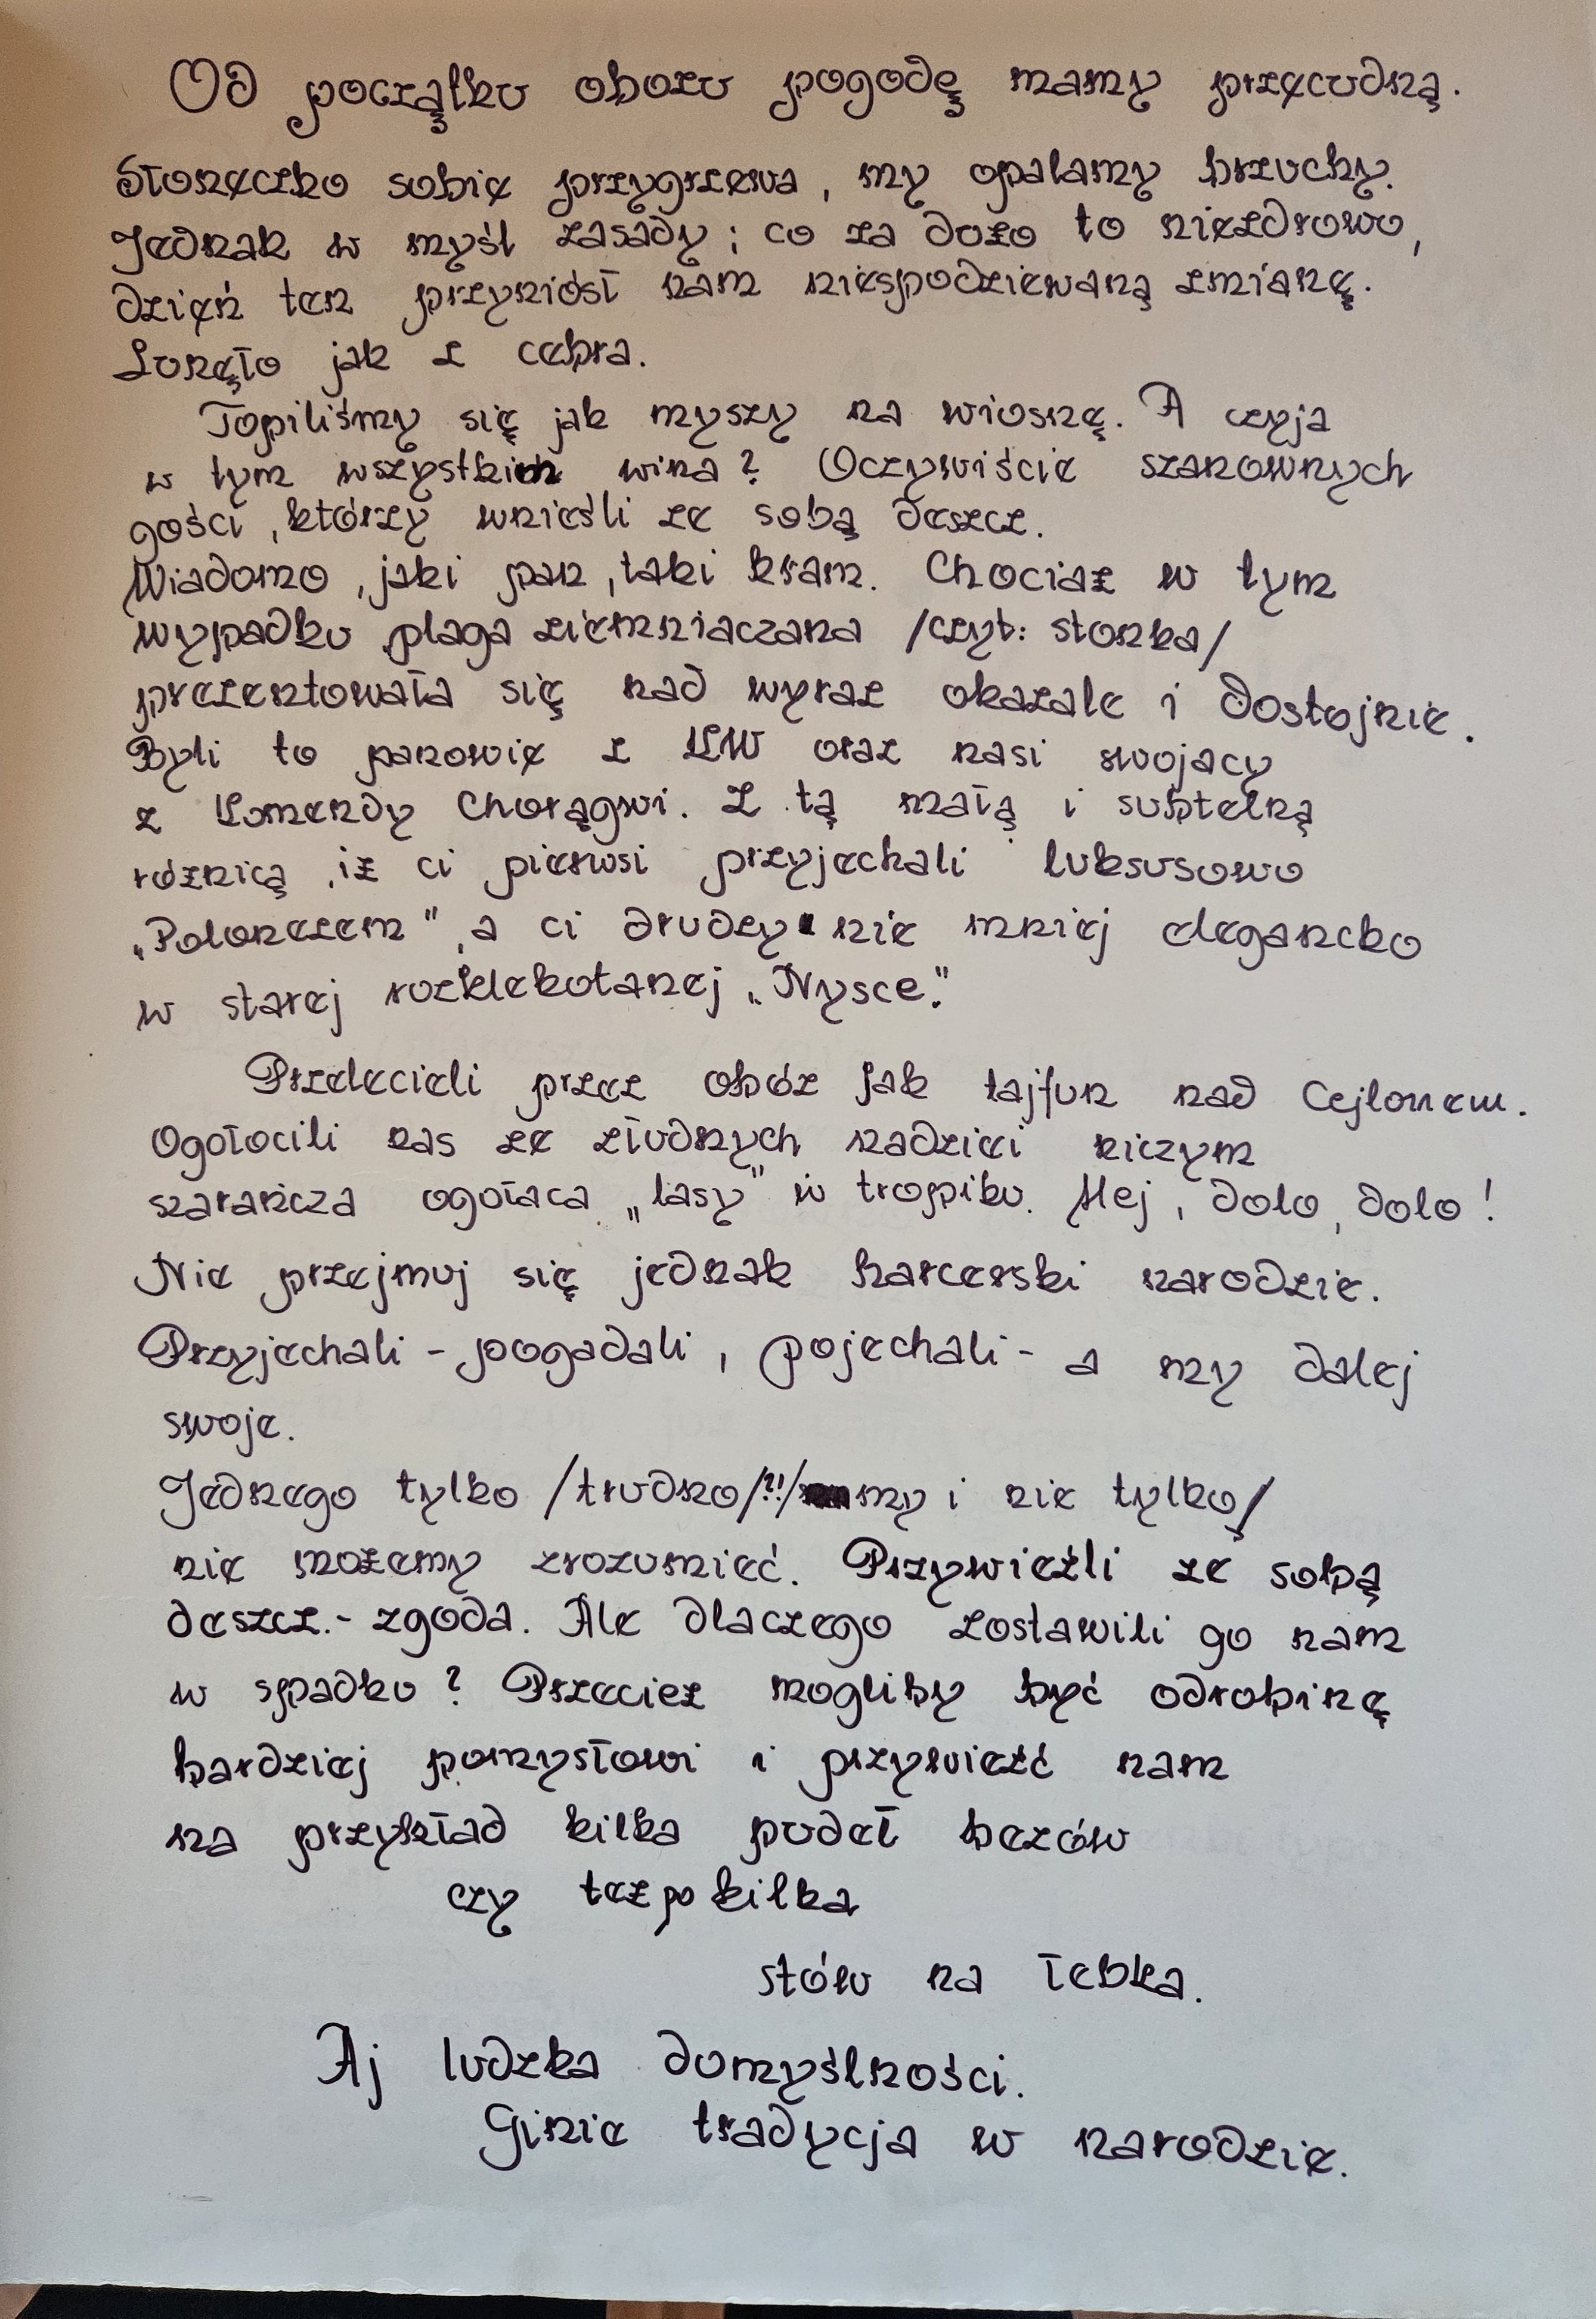 Od początku obozu pogodę mamy przecudną.
Słoneczko sobie przygrzewa, my opalamy brzuchy.
Jednak w myśl zasady; co za dużo to niezdrowo,
dzień ten przyniósł nam niespodziewaną zmianę.
Lunęło jak z cebra.
Topiliśmy się jak myszy na wiosnę. A czyja
w tym wszystkim wina? Oczywiście szanownych
gości, którzy wnieśli ze sobą deszcz.
Wiadomo, jaki pan, taki kram. Chociaż w tym
wypadku plaga ziemniaczana /czyt: stonka/
prezentowała się nad wyraz okazale i dostojnie.
Byli to panowie z KW oraz nasi swojacy
z Komendy Chorągwi. Z tą małą i subtelną
różnicą, iż ci pierwsi przyjechali luksusowo
„Polonezem", a ci drudzy nie mniej elegancko
w starej rozklekotanej „Nysce."
Przelecieli przez obóz jak tajfun nad Cejlonem.
Ogołocili nas ze złudnych nadziei niczym
szarańcza ogołaca „lasy" w tropiku. Hej, dolo, dolo!
Nie przejmuj się jednak harcerski narodzie.
Przyjechali - pogadali, pojechali - a my dalej
swoje.
Jednego tylko /trudno/?!/ my i nie tylko/
nie możemy zrozumieć. Przywieźli ze sobą
deszcz.- zgoda. Ale dlaczego zostawili go nam
w spadku? Przecież mogliby być odrobinę
bardziej pomysłowi i przywieźć nam
na przykład kilka pudeł bezów
czy też po kilka
stów na łebka.
Aj ludzka domyślności.
Ginie tradycja w narodzie.